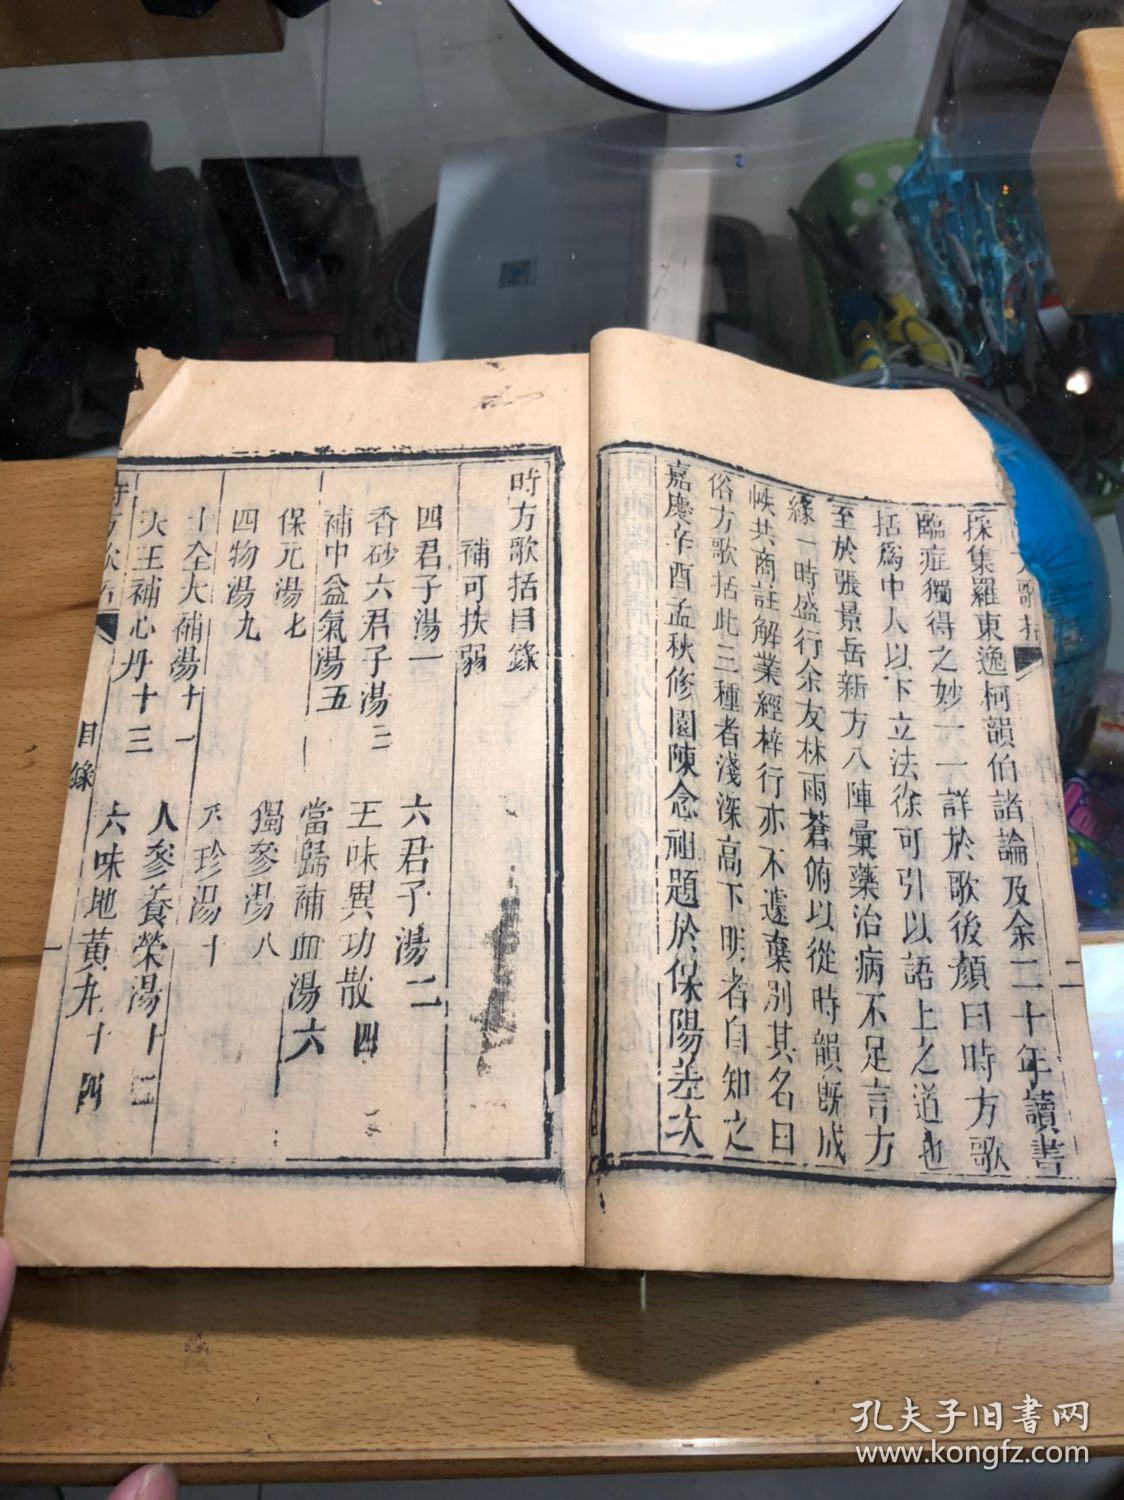 採集羅東逸柯韻伯諸論及余二十年讀書
臨症獨得之妙一一詳於歌後顏曰時方歌
括爲中人以下立法徐可引以語上之道也
至於張景岳新方八陣彙藥治病不足言方
緣一時盛行余友林雨蒼俯以從時韻既成
帙共商註解業經梓行亦不遽棄別其名曰
俗方歌括此三種者淺深高下明者自知之
嘉慶辛酉孟秋修園陳念祖題於保陽差次
二
時方歌括目錄
補可扶弱
四君子湯一
六君子湯二
香砂六君子湯三
五味異功散四
補中益氣湯五
當歸補血湯六
保元湯七
獨參湯八
四物湯九
八珍湯十
十全大補湯十一
人參養榮湯十二
天王補心丹十三
六味地黃丸十四
時方歌括
目錄
一
孔夫子旧書网
www.kongfz.com